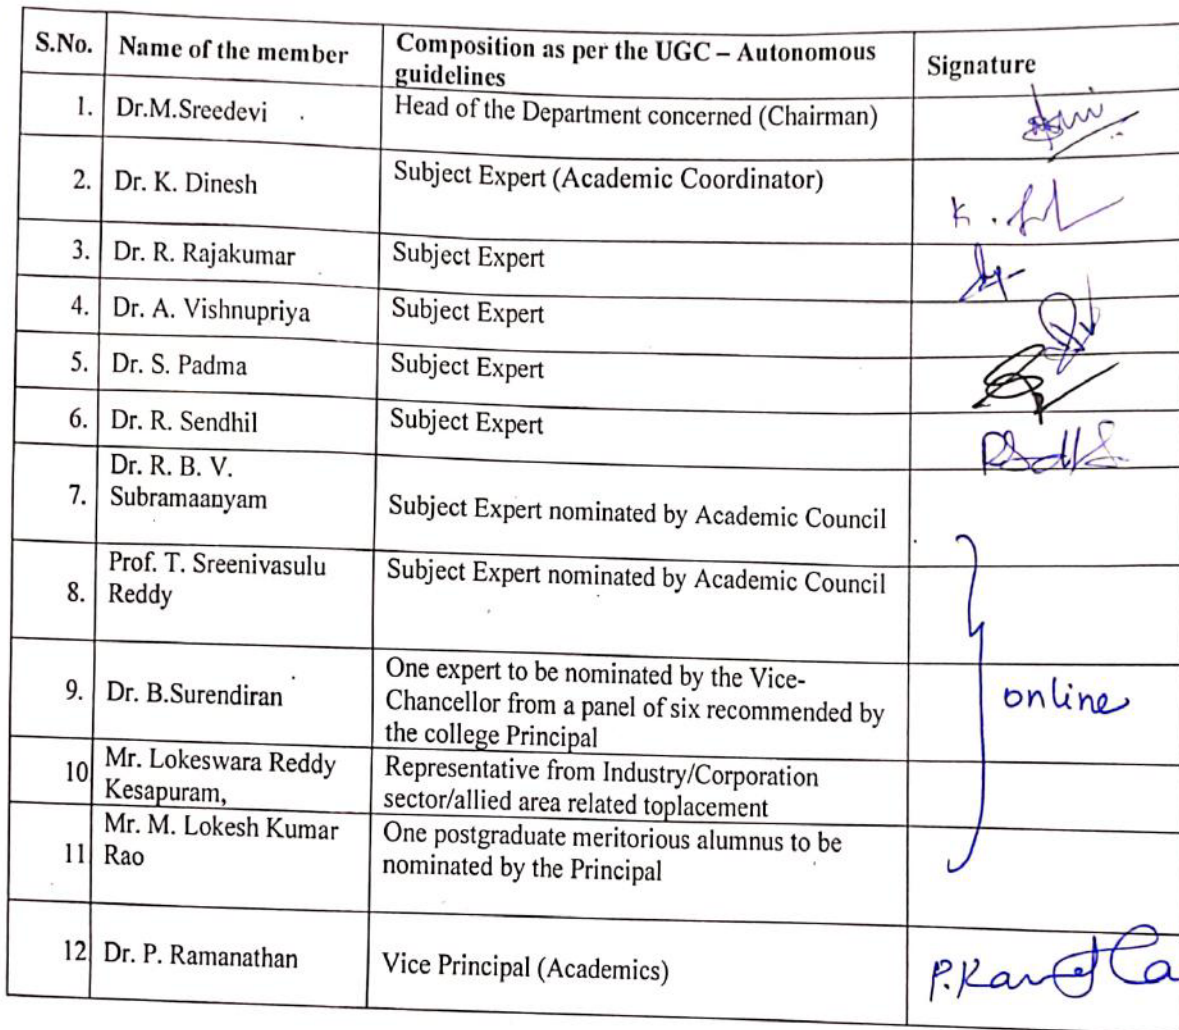 S.No. Name of the member Composition as per the UGC – Autonomous
guidelines Signature
1. Dr.M.Sreedevi Head of the Department concerned (Chairman)
2. Dr. K. Dinesh Subject Expert (Academic Coordinator)
K.
3. Dr. R. Rajakumar Subject Expert
4. Dr. A. Vishnupriya Subject Expert
5. Dr. S. Padma Subject Expert
6. Dr. R. Sendhil Subject Expert
Dr. R. B. V.
7. Subramaanyam Subject Expert nominated by Academic Council
Prof. T. Sreenivasulu Subject Expert nominated by Academic Council
8. Reddy
One expert to be nominated by the Vice-
9. Dr. B.Surendiran Chancellor from a panel of six recommended by online
the college Principal
10 Mr. Lokeswara Reddy Representative from Industry/Corporation
Kesapuram, sector/allied area related toplacement
Mr. M. Lokesh Kumar One postgraduate meritorious alumnus to be
11 Rao nominated by the Principal
12 Dr. P. Ramanathan Vice Principal (Academics)